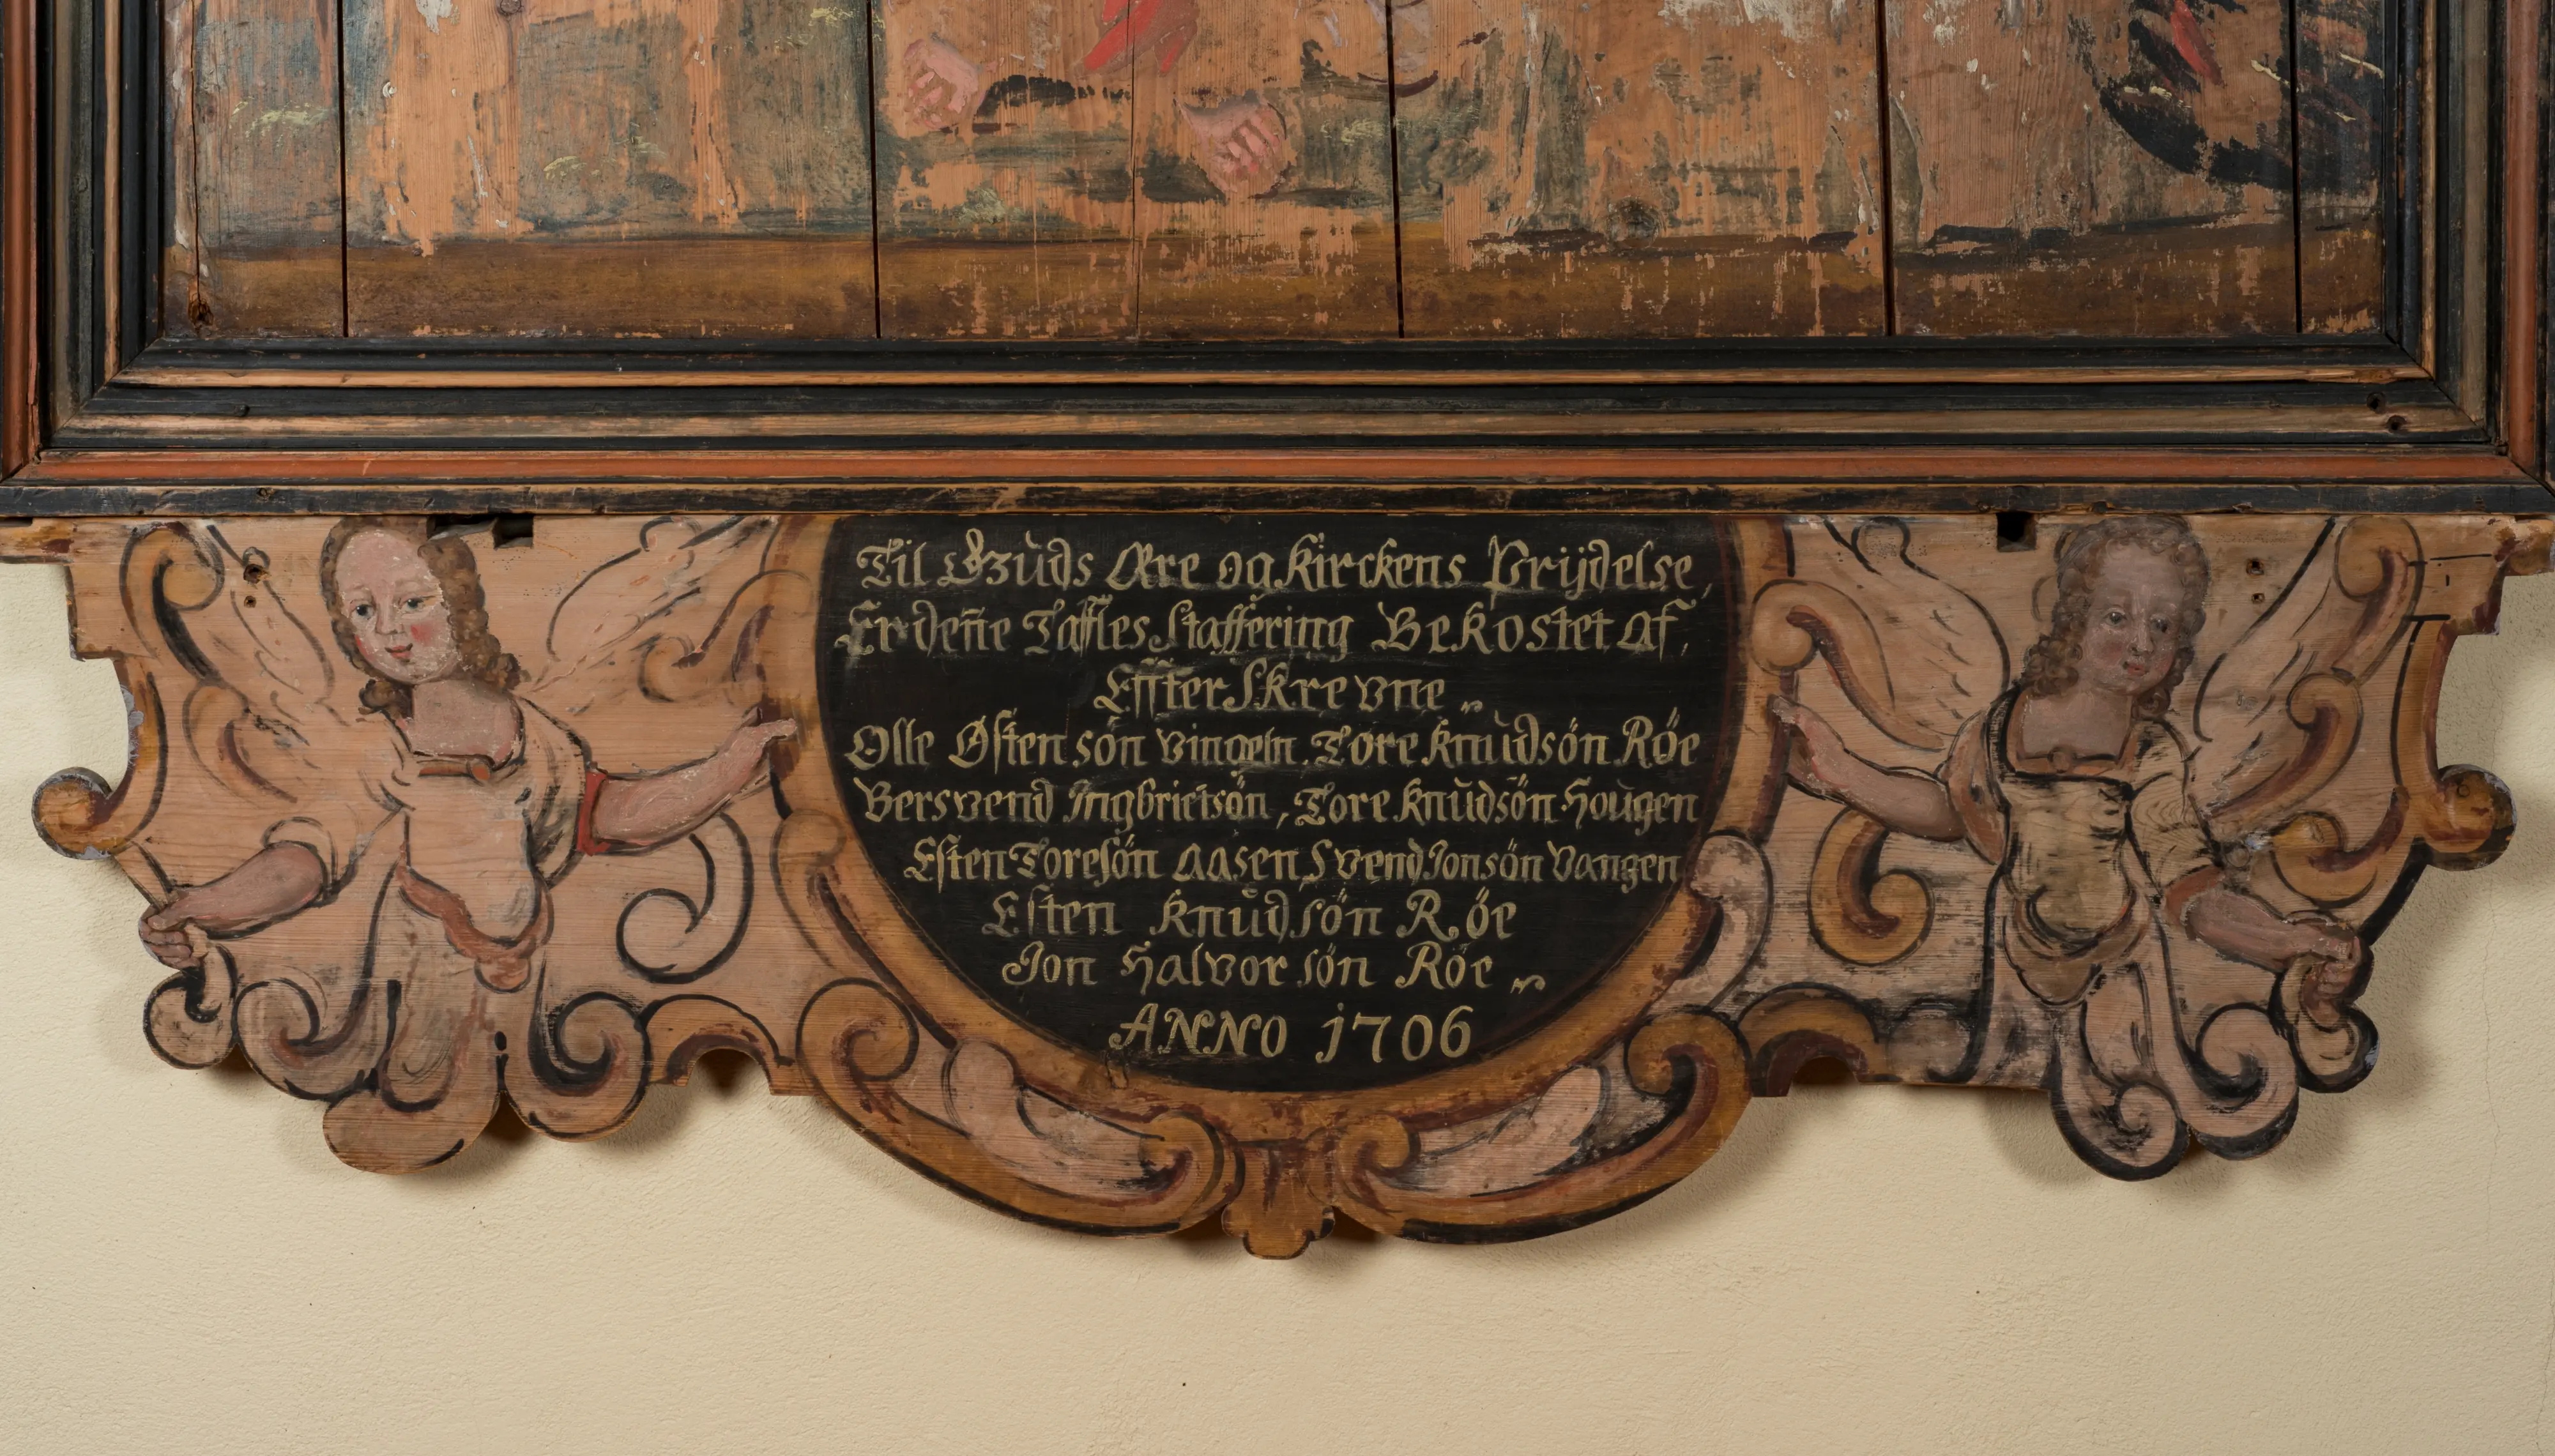 Til Gùds Ære og Kirckens Prijdelse,
Er deñe Taffles Staffering Bekostet af,
EffterSkrevne
Olle Østensön Vingeln. Tore Knùdsön Röe
Bersvend Ingbrietsön, Tore Knùdsön Hoùgen
Esten Toresön Aasen, Svend Jonsön Vangen
Esten Knùdsön Röe
Jon Halvorsön Röe
ANNO 1706